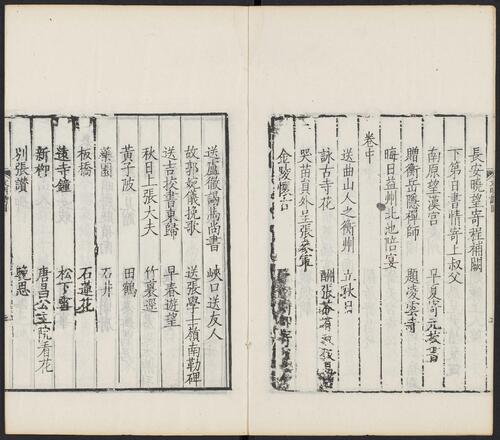 長安曉望寄程補闕
下第日書情寄上叔父
南原望漢宮　早夏寄元校書
贈衡岳隱禪師　題凌雲寺
晦日益州北池陪宴
卷中
送曲山人之衡州　立秋日
詠古寺花
哭苗員外呈張參軍
金陵懷古
送盧徹謁嵩尚書　峽口送友人
故郭婉儀挽歌　送張學士嶺南勒碑
送吉校書東歸　早春遊望
秋日上張大夫　竹裏逕
黃子陂　田鶴
藥園　石井
板橋　石蓮花
遠寺鐘　松下雪
新柳　唐昌公主院看花
別張讚　晚思